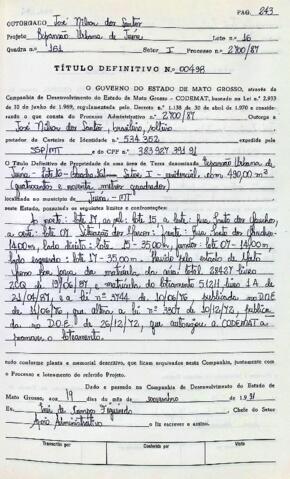 PAG. 243
OUTORGADO José Nilson dos Santos
Projeto Expansão Urbana de Juína Lote no 16
Quadra n.o 161 Setor I Processo n.o 2700/87
TÍTULO DEFINITIVO N.o 00498
O GOVERNO DO ESTADO DE MATO GROSSO, através da
Companhia de Desenvolvimento do Estado de Mato Grosso - CODEMAT, baseado na Lei n.o 2.933
de 10 de junho de 1.969, regulamentada pelo Decreto n.o 1.138 de 30 de abril de 1.970 e considerando
o que consta do Processo Administrativo n.o 2700/87 Outorga a
José Nilson dos Santos, brasileiro, solteiro
portador da Carteira de Identidade n.o 534.352 expedida pela
SSP/MT e do CPF n.o 383927391 91
O Título Definitivo de Propriedade de uma área de Terra denominada Expansão Urbana de
Juína - Lote 16 - Setor I - residencial, com 490,00 m²
(quatrocentos e noventa metros quadrados)
localizada no município de Juína - MT
neste Estado, passando os seguintes limites e confrontações:
Ao norte: lote 17, ao sul: lote 15, a leste: Rua
a oeste: lote 07. Situação dos marcos: frente: Rua
14,00m, lado direito: lote 15 - 35,00m, fundos: lote 07 - 14,00m,
lado esquerdo: lote 17 - 35,00m. Havido pelo estado de Mato
Grosso por força da matrícula da área total 28427 livro
2CQ de 19/06/87 e matrícula do loteamento 51211 livro 1 A de
21/04/87, e a lei n.o 3744 de 10/06/76 publicada no D.O.E
de 14/06/76, que altera a lei n.o 3307 de 10/12/72, publica
da no D.O.E de 26/12/72, que autorizou a CODEMAT a
promover o loteamento.
tudo conforme planta e memorial descritivo, que ficam arquivados nesta Companhia, juntamente com
o Processo e loteamento do referido Projeto.
Dado e passado na Companhia de Desenvolvimento do Estado de
Mato Grosso, aos 19 dias do mês de novembro de 1.991
Eu, Luiz de Campos Figueiredo Chefe do Setor
Apoio Administrativo o fiz escrever e assino.
Transcrito por Conferido por Visto